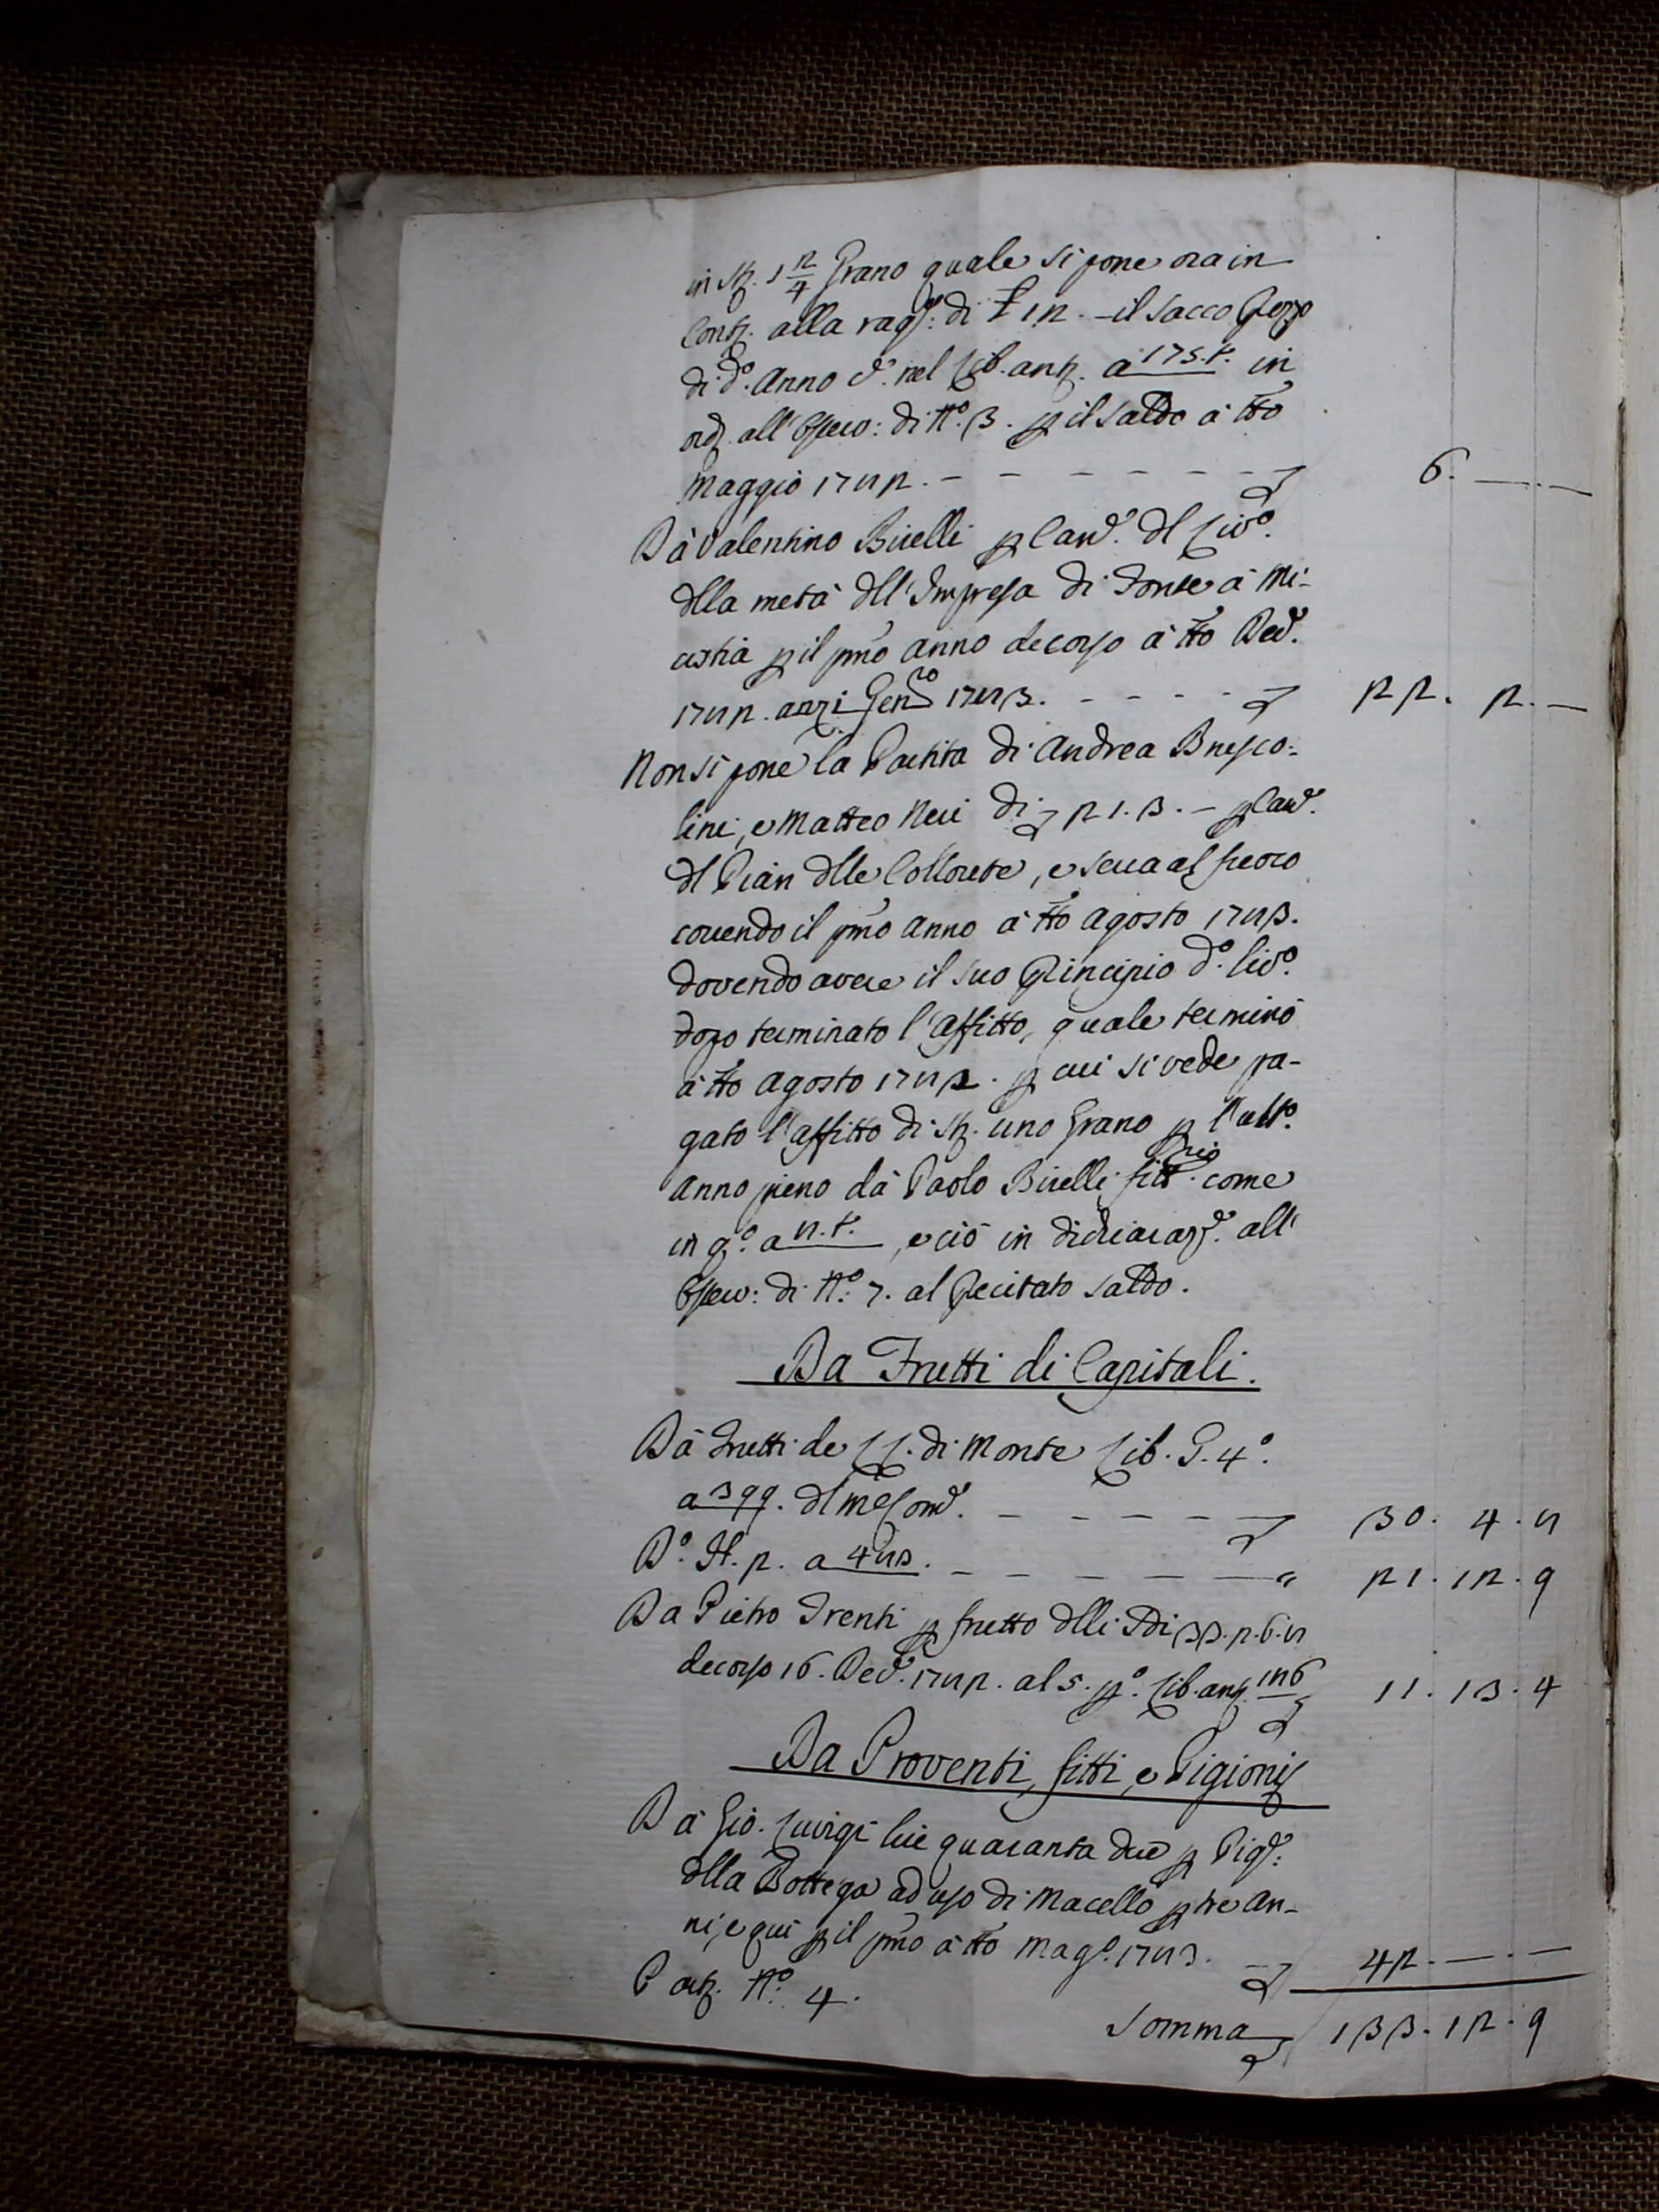 in St. 1 2/4 Grano quale si pone ora in
Cont. alla rag.e di £ 12. - il sacco Prezzo
di d.o Anno e.e nel Lib. ant. a 175.t. in
ord. all'Osserv: di N.o 3. p il saldo à tto
Maggio 1782. - - - - - - -
6. -.-
Dà Valentino Birelli p Can.e dl Liv.o
dlla metà dll'Impresa di Fonte à Mi-
cistia p il pmo Anno decorso à tto Dec.e
1782. anzi Gen.ro 1783. - - - -
22. 2. -
Non si pone la Partita di Andrea Brusco-
lini, e Matteo Neri di 21.3. - p Can.e
dl Pian dlle Collorete, e Serra al fuoco
correndo il pmo Anno à tto Agosto 1783.
dovendo avere il suo Principio d.o liv.o
dopo terminato l'Affitto, quale terminò
à tto Agosto 1782. p cui si vede pa-
gato l'affitto di St. uno Grano p l'ult.o
Anno pieno dà Paolo Birelli fitt.rio come
in q.o a 8.t., e ciò in dichiaraz.e all'
Osserv: di N.o 7. al Precitato saldo.
Da Frutti di Capitali.
Dà Frutti de LL. di Monte Lib. G. 4.o
a 399. dl med.
30. 4. 8
D.o H. 2. a 483. - - - - - "
21. 12. 9
Da Pietro Trenti p frutto dlli di 33.2.6.8
decorso 16. Dec.e 1782. al 5. p.o Lib. ant. 186
11. 13. 4
Da Proventi, fitti, e Pigioni
Dà Gio. Luvigi lire quaranta due p Pig.e
dlla Bottega ad uso di Macello p tre An-
ni, e qui p il pmo à tto Mag.o 1783. -
42. -.-
Part. N.o 4.
Somma 133. 12. 9